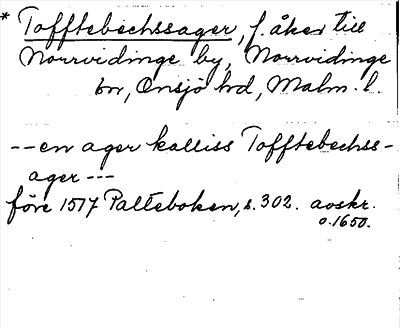 * Tofftebechssager, f. åker till
Norrvidinge by, Norrvidinge
sn, Onsjö hd, Malm. l.
-- en ager kalliss Tofftebechss-
ager ---
före 1517 Palteboken, s. 302. avskr.
o. 1650.